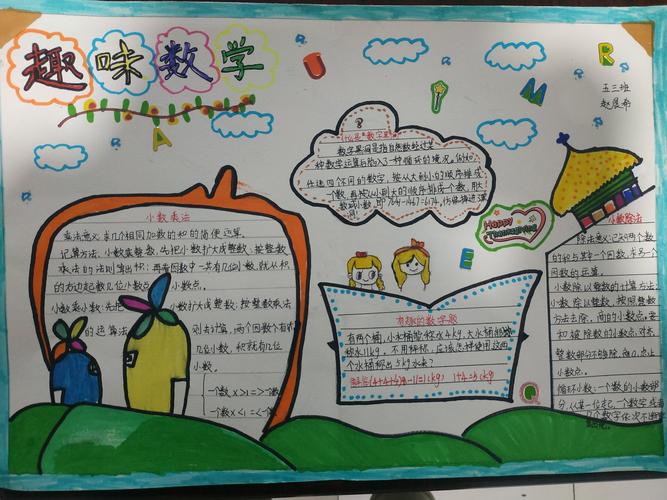 趣味数学
R
U
M
A
E
五三班
什么是"数字黑洞"
数字黑洞是指自然数经过某
种数学运算后陷入了一种循环的境况。例如:
任选四个不同的数字,按从大到小的顺序排成
一个数,再按从小到大的顺序排成一个数,用大
数减小数,即7641-1467=6174
Happy
Thanksgiving
小数乘法
乘法意义:求几个相同加数的和的简便运算
计算方法:小数乘整数:先把小数扩大成整数;按整数
乘法的法则算出积;再看因数中一共有几位小数,就从积
的右边起数几位小数点
小数点。
小数乘小数:先把
小数扩大成整数;按整数乘法
的运算法
则去计算,两个因数个有
几位小数,积就有几位
小数。
一个数×>1=>一个数
一个数×<1=<一个数
有趣的数字题
有两个桶,小水桶能称水4kg,大水桶能
称水11kg。不用秤称,应该怎样使用这两
个水桶称出5kg水来?
(4+4+4)-11=1(kg) 1+4=5(kg)
小数除法
除法意义:已知两个数
的积与其中一个因数,求另一个
因数的运算。
小数除以整数的计算方法:
小数除以整数,按照整数
方法去除,商的小数点要
和被除数的小数点对齐
整数部分不够除,商0,点上
小数点。
循环小数:一个数的小数部
分,从某一位起,一个数字或者
几个数字依次不断